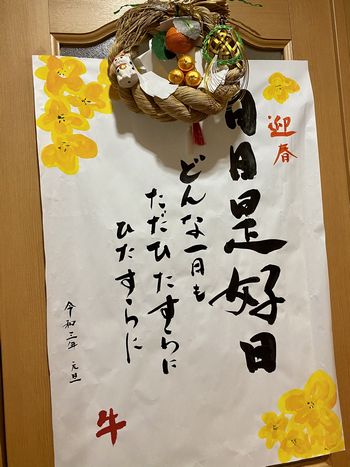 迎春
日日是好日
どんな一日も
ただひたすらに
ひたすらに
令和三年 元旦
牛